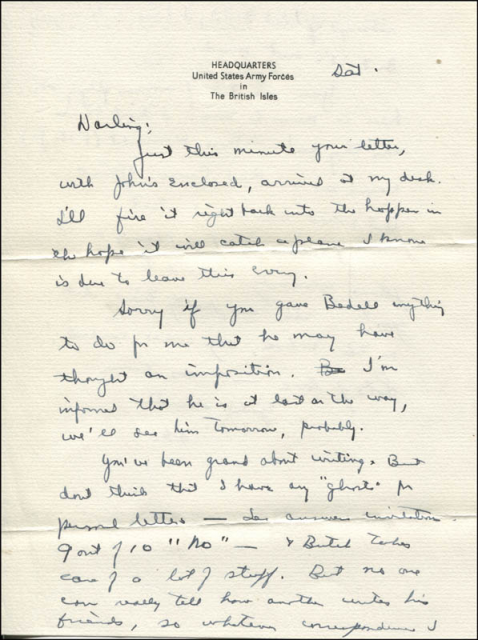 HEADQUARTERS
United States Army Forces
in
The British Isles
Sat.
Darling;
Just this minute your letter,
with John's enclosed, arrived at my desk.
I'll fire it right back into the hopper in
the hope it will catch a plane I know
is due to leave this evng.
Sorry if you gave Bedell anything
to do for me that he may have
thought an imposition. I'm
informed that he is at last on the way,
we'll see him tomorrow, probably.
You've been grand about writing. But
don't think that I have any "ghosts" for
personal letters — answer invitations
9 out of 10 "No" — & Butch takes
care of a lot of stuff. But no one
can really tell how another writes his
friends, so whatever correspondence I